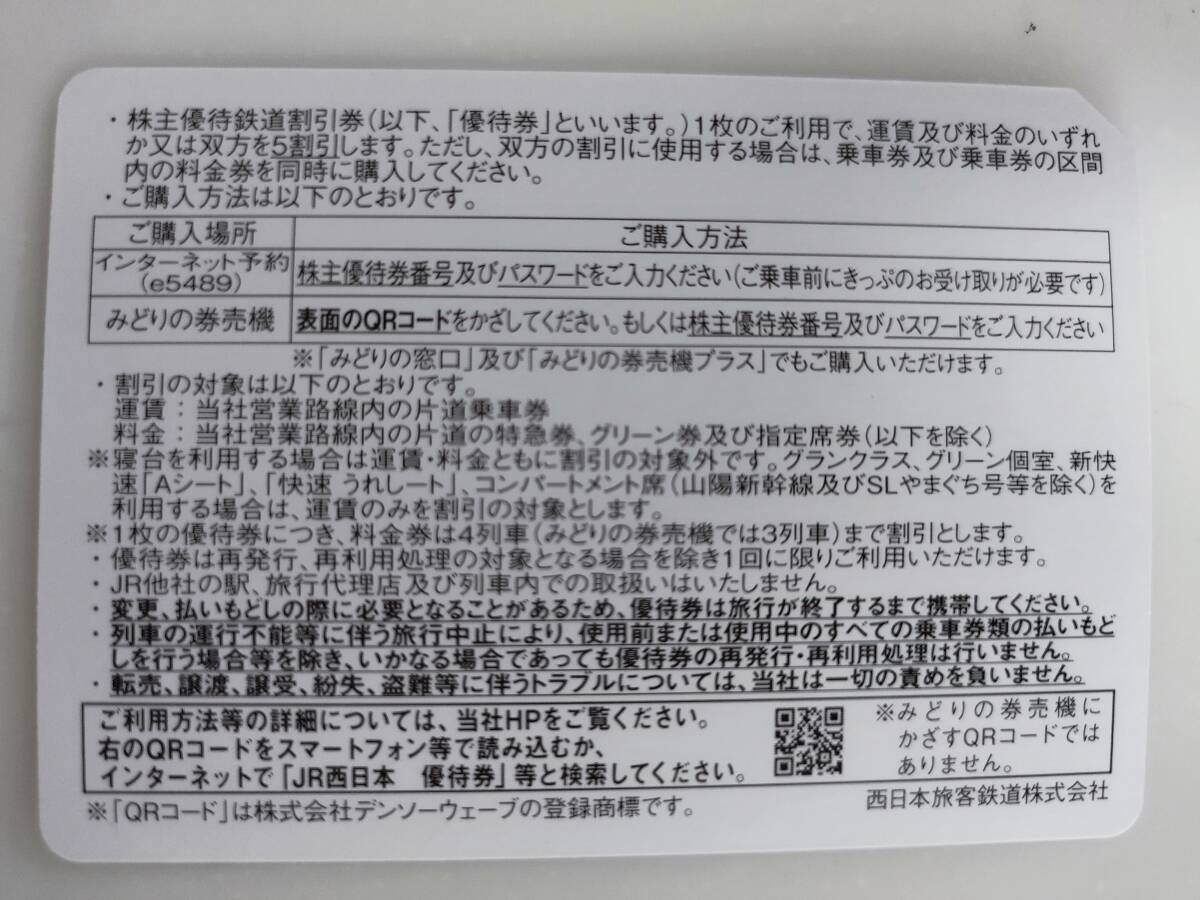 ・株主優待鉄道割引券(以下、「優待券」といいます。)1枚のご利用で、運賃及び料金のいずれ
か又は双方を5割引します。ただし、双方の割引に使用する場合は、乗車券及び乗車券の区間
内の料金券を同時に購入してください。
・ご購入方法は以下のとおりです。
ご購入場所 ご購入方法
インターネット予約
(e5489)
株主優待券番号及びパスワードをご入力ください(ご乗車前にきっぷのお受け取りが必要です)
みどりの券売機 表面のQRコードをかざしてください。もしくは株主優待券番号及びパスワードをご入力ください
※「みどりの窓口」及び「みどりの券売機プラス」でもご購入いただけます。
・割引の対象は以下のとおりです。
運賃:当社営業路線内の片道乗車券
料金:当社営業路線内の片道の特急券、グリーン券及び指定席券(以下を除く)
※寝台を利用する場合は運賃・料金ともに割引の対象外です。グランクラス、グリーン個室、新快
速「Aシート」、「快速 うれしート」、コンパートメント席(山陽新幹線及びSLやまぐち号等を除く)を
利用する場合は、運賃のみを割引の対象とします。
※1枚の優待券につき、料金券は4列車(みどりの券売機では3列車)まで割引とします。
・優待券は再発行、再利用処理の対象となる場合を除き1回に限りご利用いただけます。
・JR他社の駅、旅行代理店及び列車内での取扱いはいたしません。
・変更、払いもどしの際に必要となることがあるため、優待券は旅行が終了するまで携帯してください。
・列車の運行不能等に伴う旅行中止により、使用前または使用中のすべての乗車券類の払いもど
しを行う場合等を除き、いかなる場合であっても優待券の再発行・再利用処理は行いません。
・転売、譲渡、譲受、紛失、盗難等に伴うトラブルについては、当社は一切の責めを負いません。
ご利用方法等の詳細については、当社HPをご覧ください。
右のQRコードをスマートフォン等で読み込むか、
インターネットで「JR西日本 優待券」等と検索してください。
※みどりの券売機に
かざすQRコードでは
ありません。
※「QRコード」は株式会社デンソーウェーブの登録商標です。
西日本旅客鉄道株式会社